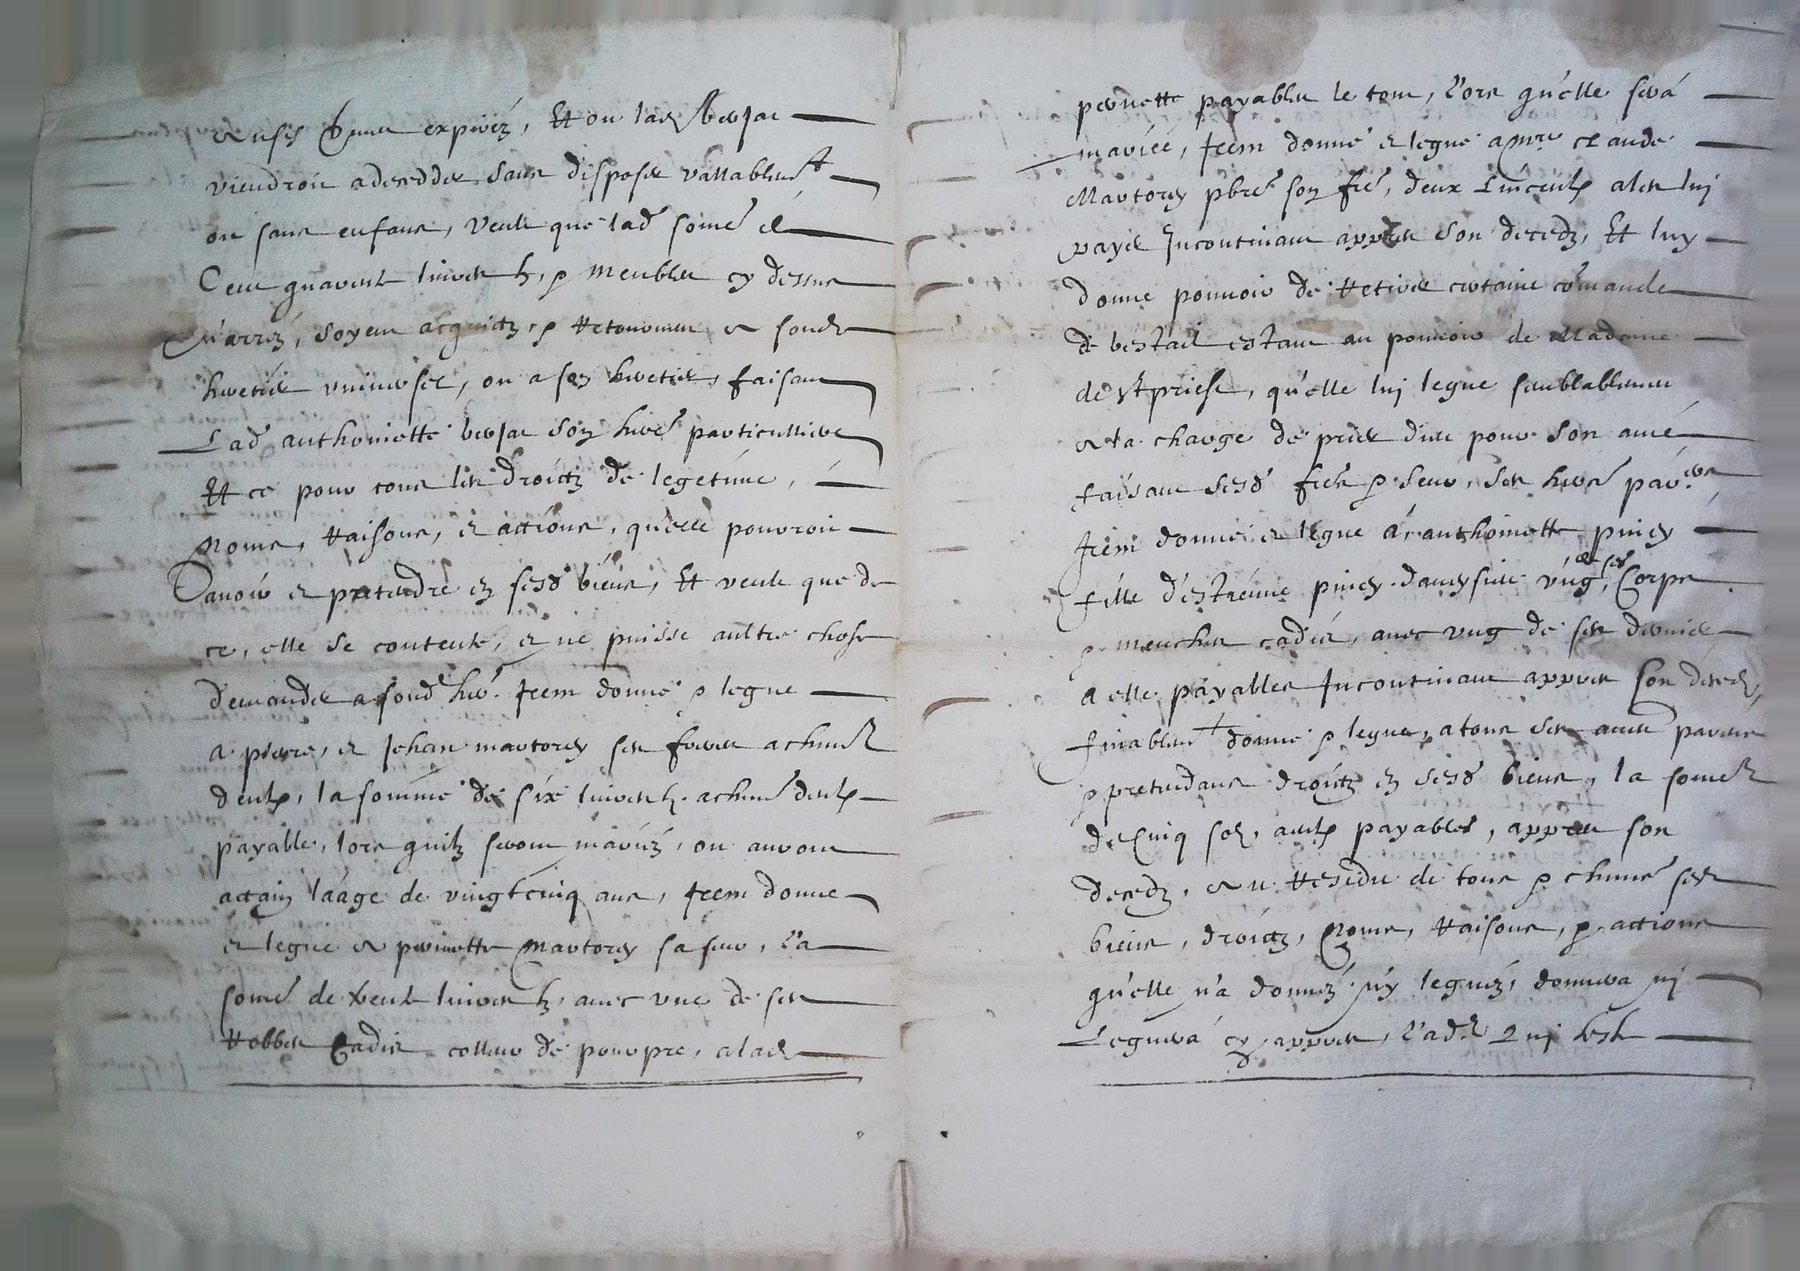 expirez, Et ou lad. Berjac
viendroit a deceder sans disposer vallablemt
ou sans enfans, veult que lad. somē et
Cent quarente livres tz, et meubles cy dessus
soyent acquictz, et retournent a sond.
heretier universel, ou a son heretier, faisant
Lad. anthoinette berjac son herē particulliere
Et ce pour tous les droictz de legetime,
Noms, Raisons, et actions, quelle pourroit
avoir et pretendre en sesd. biens, Et veult que de
ce, elle se contente, et ne puisse aultre chose
demander a sond. her. Item donne et legue
a pierre, et Jehan martorey ses freres a chuner
deulx, la somme de six livres tz. a chune deulx
payable, lors quilz seront mariez, ou auront
actain laage de vingt cinq ans, Item donne
et legue a pernette Martorey sa seur, la
somē de livres tz, avec une de ses
Robbes Cadis colleur de pourpre, a lad.
pernette payables le tout, lors qu'elle sera
mariée, Item donne et legue a mre claude
Martorey pbre son fre, deux Linceulx a les lui
payer Incontinant appres son decedz, Et luy
donne pouvoir de Retirer certaine comande
de bestail estant au pouvoir de Madame
de st priest, qu'elle lui legue semblablement
a la charge de prier dieu pour son ame
faisant sesd. freres et seur, ses heres parers
Item donne et legue a anthoinette piney
fille d'estienne piney ung de ses Corps
et menches cadis, avec ung de ses
a elle payables Incontinant appres son decedz,
finablemt donne et legue, a tous ses aultres parens
et pretendans droictz en sesd. biens, la somē
de Cinq solz, aulx payables, appres son
decedz, et au Residu de tous et chuns ses
biens, droictz, Noms, Raisons, et actions
qu'elle n'a donnéz ny leguéz, donnera ni
Leguera cy appres, Lad. qui test